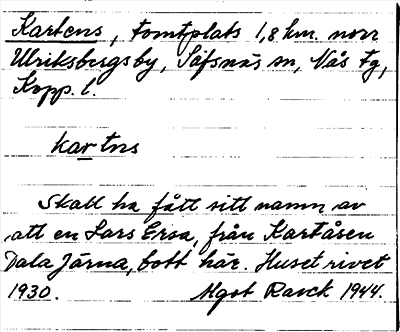 Kartens, tomtplats 1,8 km. norr
Ulriksbergsby, Säfsnäs sn, Nås tg,
Kopp. l.
kartns
Skall ha fått sitt namn av
att en Lars Ersa, från Kartåsen
Dala Järna, bott här. Huset rivet
1930. Mgot Ranck 1944.